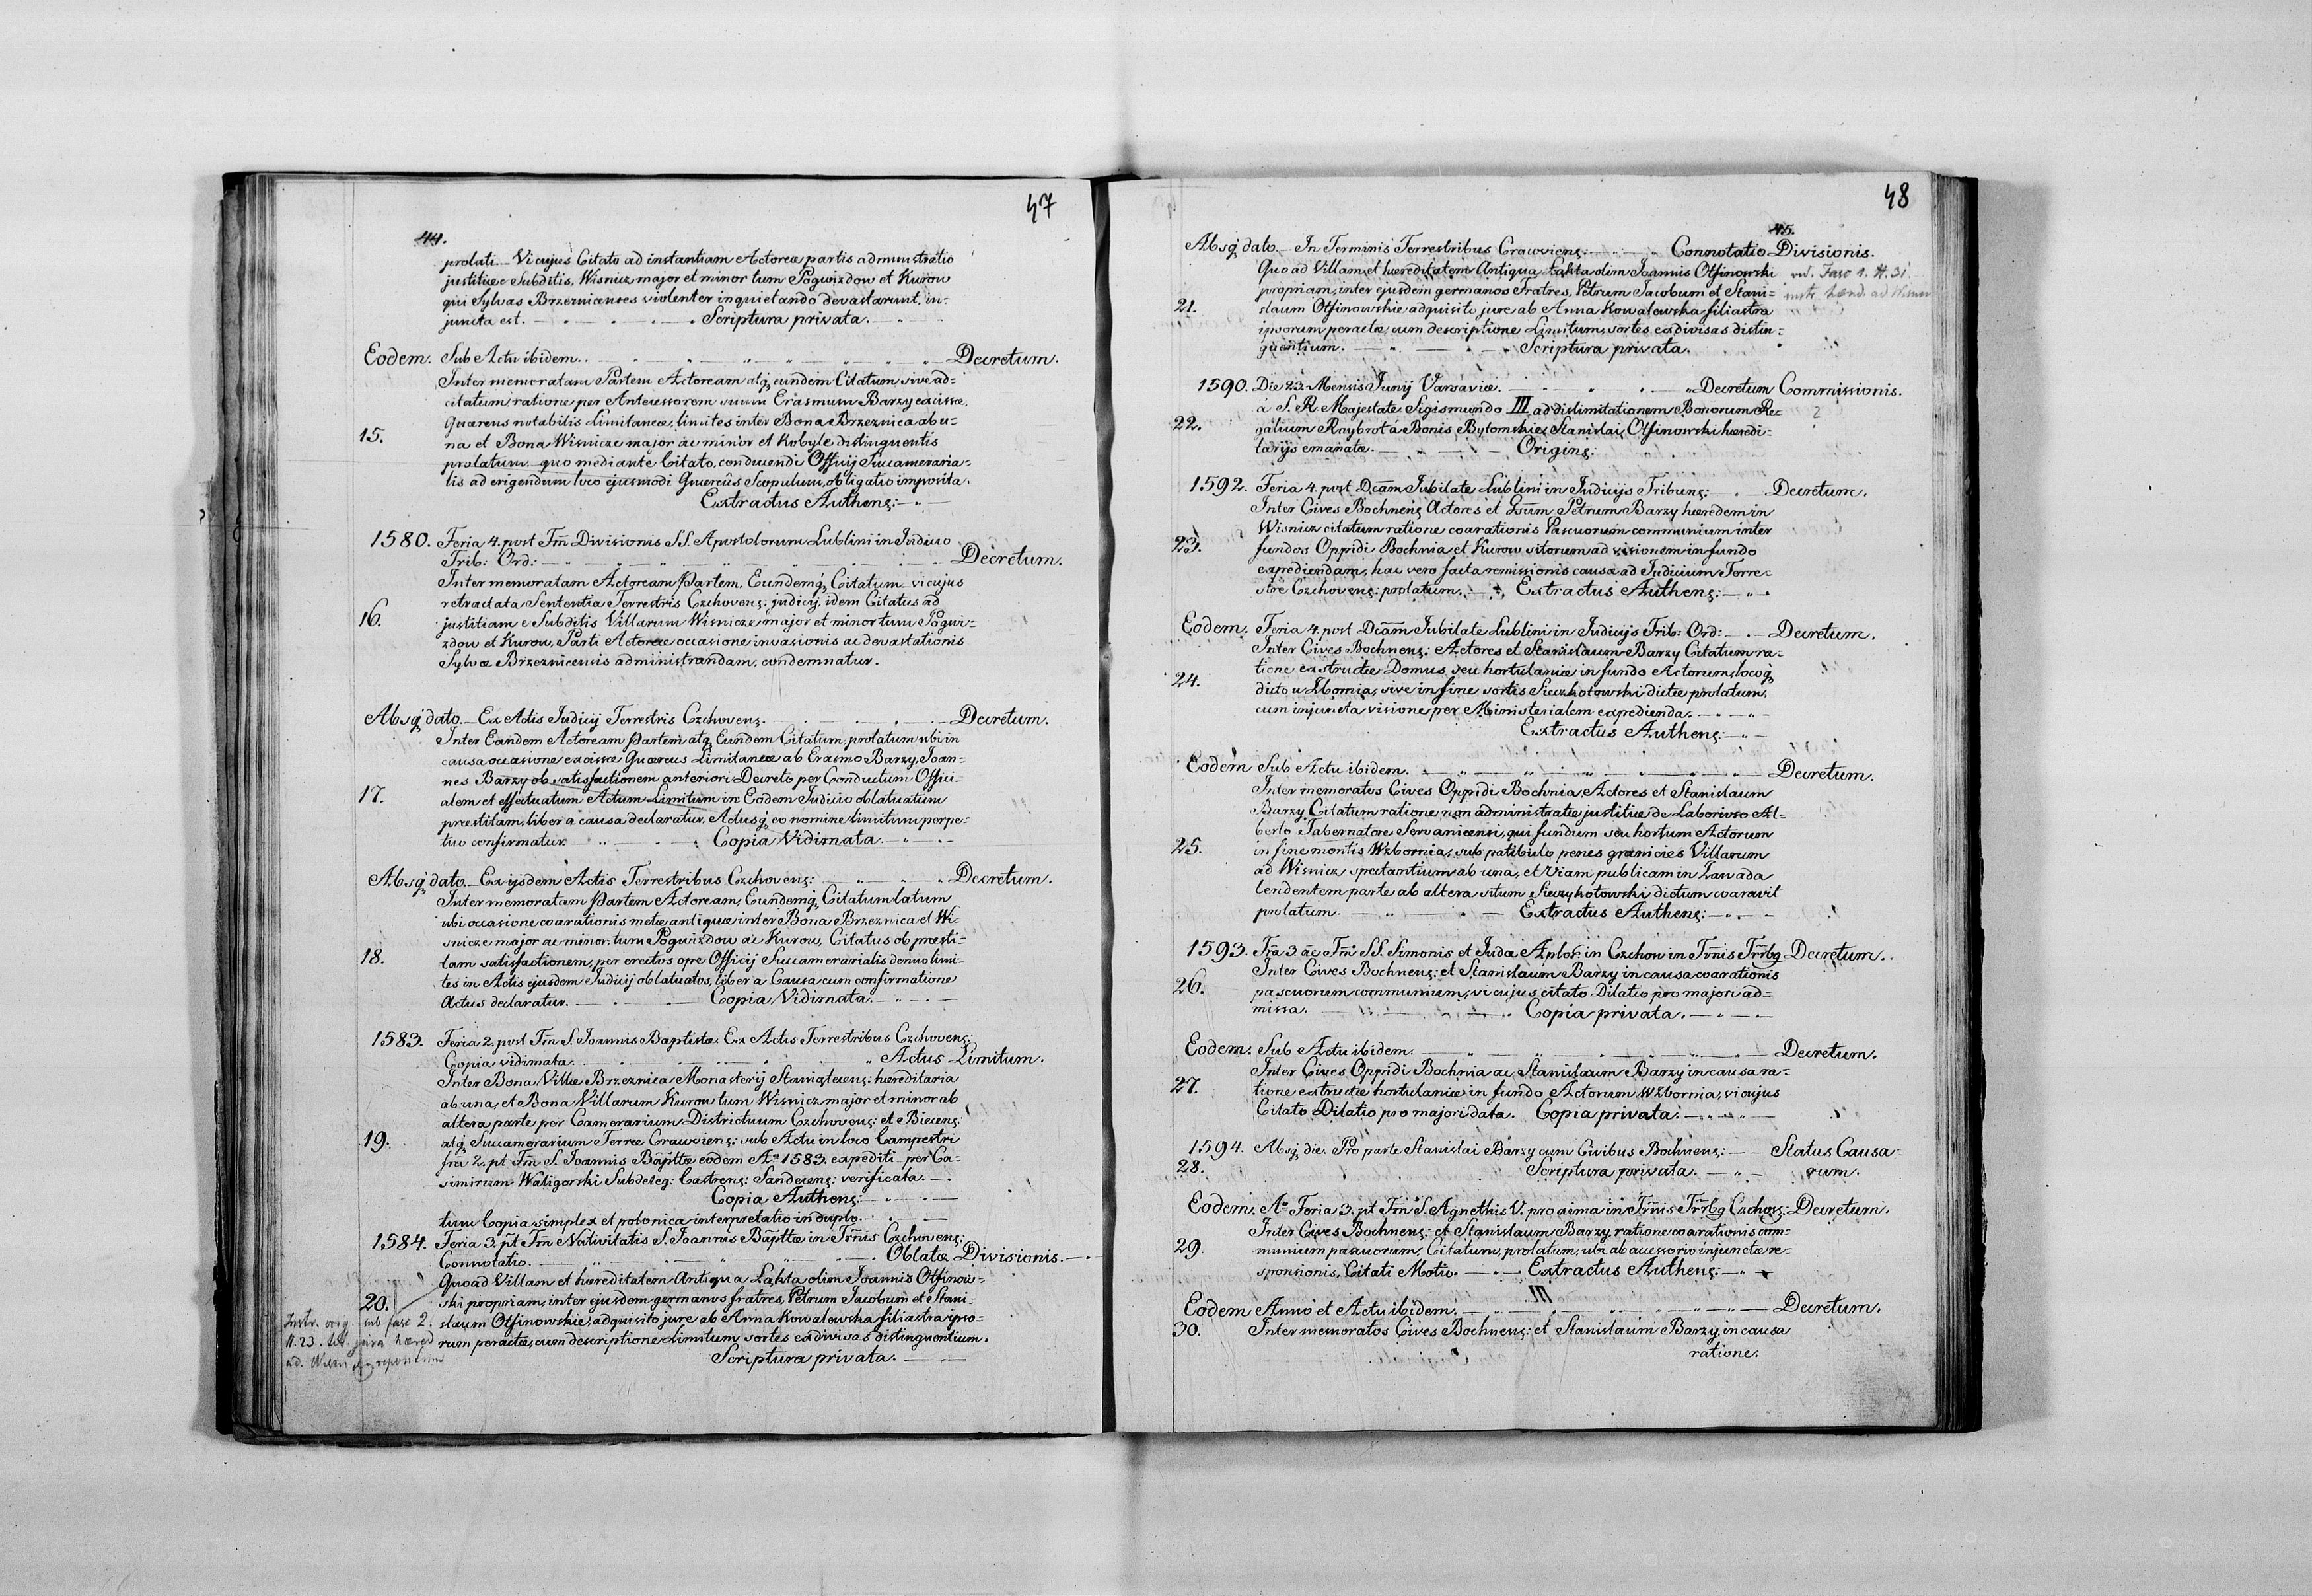 47
44.
prolati. Vi cujus Citato ad instantiam Actoreæ partis administratio
justitiæ e Subditis, Wisnicz major et minor tum Pogwizdow et Kurow
qui Sylvas Brzeznicenses violenter inquietando devastarunt, in-
juncta est. Scriptura privata.
Eodem. Sub Actu ibidem. Decretum.
Inter memoratam Partem Actoream atq, eundem Citatum sive ad-
citatum, ratione per Antecessorem suum Erasmum Barzy excissæ
Quercus notabilis Limitaneæ, limites inter Bona Brzeznica ab u-
15. na et Bona Wisnicze major ac minor et Kobyle distinguentis
prolatum quo mediante Citato, conducendi Officij Succameraria-
lis ad erigendum loco ejusmodi Quercûs Scopulum, obligatio imposita.
Extractus Authens:
1580. Feria 4. post Fm̃ Divisionis S.S. Apostolorum Lublini in Judicio
Trib: Ord: Decretum.
Inter memoratam Actoream Partem, Eundemq, Citatum vi cujus
retractata Sententia Terrestris Czchovens: judicij, idem Citatus ad
16. justitiam e Subditis Villarum Wisnicze major et minor tum Pogwi-
zdow et Kurow, Parti Actoreæ occasione invasionis ac devastationis
Sylvæ Brzeznicensis administrandam, condemnatur.
Absq, dato. Ex Actis Judicij Terrestris Czchovens. Decretum.
Inter Eandem Actoream Partem atq, Eundem Citatum, prolatum ubi in
causa occasione excissæ Quercus Limitaneæ ab Erasmo Barzy, Joan-
nes Barzy ob satisfactionem anteriori Decreto per Conductum Offici-
17. alem et effectuatum Actum Limitum in Eodem Judicio oblatuatum
præstitam, liber a causa declaratur. Actusq, eo nomine limitum perpe-
tuo confirmatur. Copia Vidimata.
Absq, dato. Ex ijsdem Actis Terrestribus Czchovens: Decretum.
Inter memoratam Partem Actoream, Eundemq, Citatum latum
ubi occasione coarationis metæ antiquæ inter Bona Brzeznica et Wi-
snicze major ac minor, tum Pogwizdow ac Kurow, Citatus ob præsti-
18. tam satisfactionem, per erectos ope Officij Succamerarialis denuo limi-
tes in Actis ejusdem Judicij oblatuatos, liber a Causa cum confirmatione
Actus declaratur. Copia Vidimata.
1583. Feria 2. post Fm̃ S. Joannis Baptistæ Ex Actis Terrestribus Czchovens:
Copia vidimata. Actus Limitum.
Inter Bona Villæ Brzeznica Monasterij Staniątecens: hæreditaria
ab una, et Bona Villarum Kurow tum Wisnicz major et minor ab
altera parte per Camerarium Districtuum Czchovens: et Biecens:
19. atq, Succamerarium Terræ Cracoviens: sub Actu in loco Campestri
fra 2. pt Fm̃ S. Joannis Bapttæ eodem Ao 1583. expediti per Ca-
simirum Waligorski Subdeleg: Castrens: Sandecens: verificata.
Copia Authens:
tum Copia simplex et polonica interpretatio in duplo.
1584. Feria 3. pt Fm̃ Nativitatis S. Joannis Bapttæ in Trnis Czchovens:
Connotatio. Oblatæ Divisionis.
Quo ad Villam et hæreditatem Antiqua Łąkta olim Joannis Otfinow-
20. ski propriam, inter ejusdem germanos fratres, Petrum Jacobum et Stani-
slaum Otfinowskie, adquisito jure ab Anna Kowalewska filiastra ipso-
rum peractæ, cum descriptione Limitum sortes exdivisas distinguentium.
Scriptura privata.
Instr. orig. sub fasc 2.
N. 23. jura hæred
ad. reponitur
48
45.
Absq, dato. In Terminis Terrestribus Cracoviens: Connotatio Divisionis.
Quo ad Villam et hæreditatem Antiqua Łąkta olim Joannis Otfinowski
propriam, inter ejusdem germanos Fratres, Petrum Jacobum et Stani-
21. slaum Otfinowskie adquisito jure ab Anna Kowalewska filiastra
ipsorum peractæ, cum descriptione Limitum, sortes exdivisas distin-
guentium. Scriptura privata.
vid. Fasc 1. N. 31.
1590. Die 23. Mensis Junij Varsaviæ. Decretum Commissionis.
a S. R. Majestate Sigismundo III ad dislimitationem Bonorum Re-
22. galium Raybrot á Bonis Bytomskie Stanislai Otfinowski hæredi-
tarijs emanatæ. Origins:
?
1592. Feria 4. post Dcam Jubilate Lublini in Judicijs Tribuns: Decretum.
Inter Cives Bochnens Actores et Petrum Barzy hæredem in
Wisnicz citatum ratione coarationis Pascuorum communium inter
23. fundos Oppidi Bochnia et Kurow sitorum ad visionem in fundo
expediendam, hac vero facta remissionis causæ ad Judicium Terre-
stre Czchovens: prolatum. Extractus Authens:
Eodem. Feria 4. post Dcam Jubilate Lublini in Judicijs Trib: Ord: Decretum.
Inter Cives Bochnens: Actores et Stanislaum Barzy Citatum ra-
tione exstructæ Domus seu hortulaniæ in fundo Actorum, locoq,
24. dicto u Zbornia, sive in fine sortis Sieczkotowski dictæ prolatum,
cum injuncta visione per Ministerialem expedienda.
Extractus Authens:
Eodem Sub Actu ibidem. Decretum.
Inter memoratos Cives Oppidi Bochnia, Actores et Stanislaum
Barzy Citatum ratione non administratæ justitiæ de Laborioso Al-
berto Tabernatore Servanicensi, qui fundum seu hortum Actorum
25. in fine montis Wzbornia, sub patibulo penes granicies Villarum
ad Wisnicz spectantium ab una, et Viam publicam in Zawada
tendentem parte ab altera situm Sieczykotowski dictum coaravit
prolatum. Extractus Authens:
1593. Fra 3. ac Fm̃ S.S. Simonis et Judæ Aplor: in Czchow in Trnis Trrbg Decretum.
Inter Cives Bochnens: et Stanislaum Barzy in causa coarationis
26. pascuorum communium, vi cujus citato Dilatio pro majori ad-
missa. Copia privata.
Eodem. Sub Actu ibidem. Decretum.
Inter Cives Oppidi Bochnia ac Stanislaum Barzy in causa ra-
27. tione extructæ hortulaniæ in fundo Actorum Wzbornia, vi cujus
Citato Dilatio pro majori data. Copia privata.
1594. Absq, die. Pro parte Stanislai Barzy cum Civibus Bochnens: Status Causa-
28. Scriptura privata. rum.
Eodem. Ao Feria 3. pt Fm̃ S. Agnethis V. proxima in Trnis Trrbg Czchov: Decretum.
Inter Cives Bochnens: et Stanislaum Barzy, ratione coarationis com-
29. munium pascuorum, Citatum, prolatum, ubi ab accessorio injunctæ re-
sponsionis, Citati Motio. Extractus Authens:
Eodem Anno et Actu ibidem. Decretum.
30. Inter memoratos Cives Bochnens: et Stanislaum Barzy, in causa
ratione.